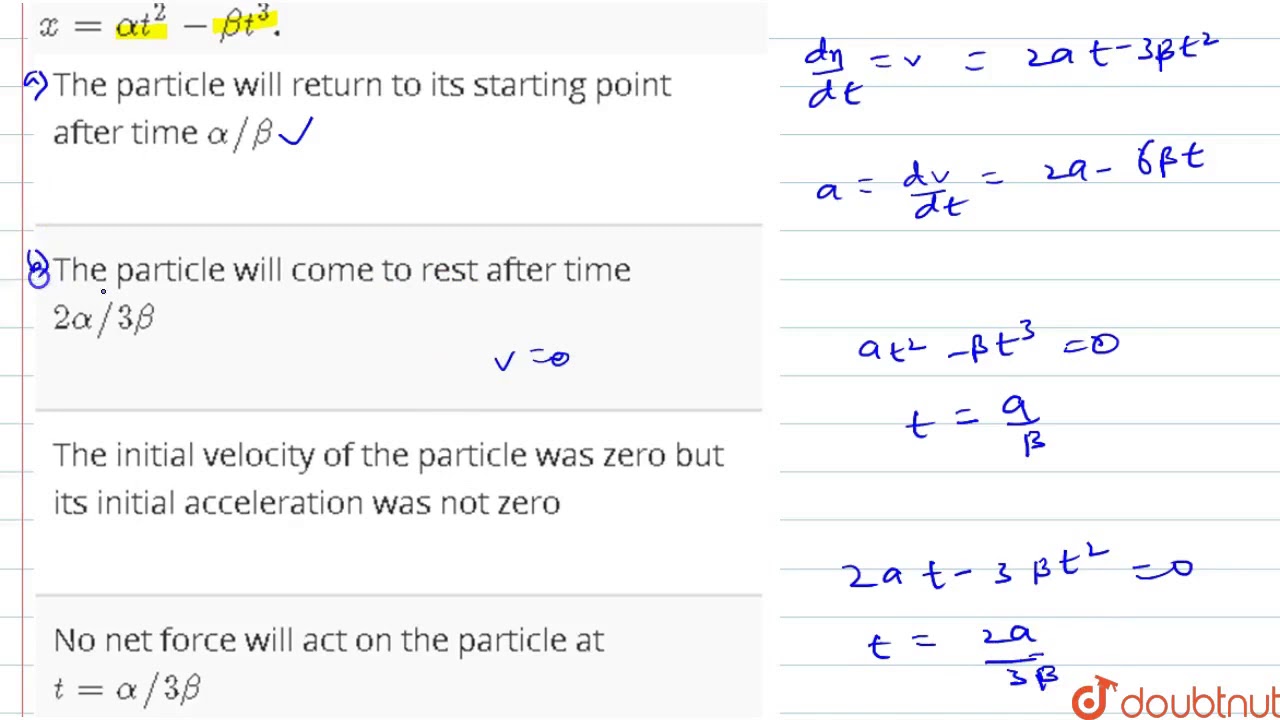 x = αt² − βt³.
a) The particle will return to its starting point
after time α/β ✓
b) The particle will come to rest after time
2α/3β
v = 0
The initial velocity of the particle was zero but
its initial acceleration was not zero
No net force will act on the particle at
t = α/3β
dx/dt = v = 2αt − 3βt²
a = dv/dt = 2α − 6βt
αt² − βt³ = 0
t = α/β
2αt − 3βt² = 0
t = 2α/3β
doubtnut